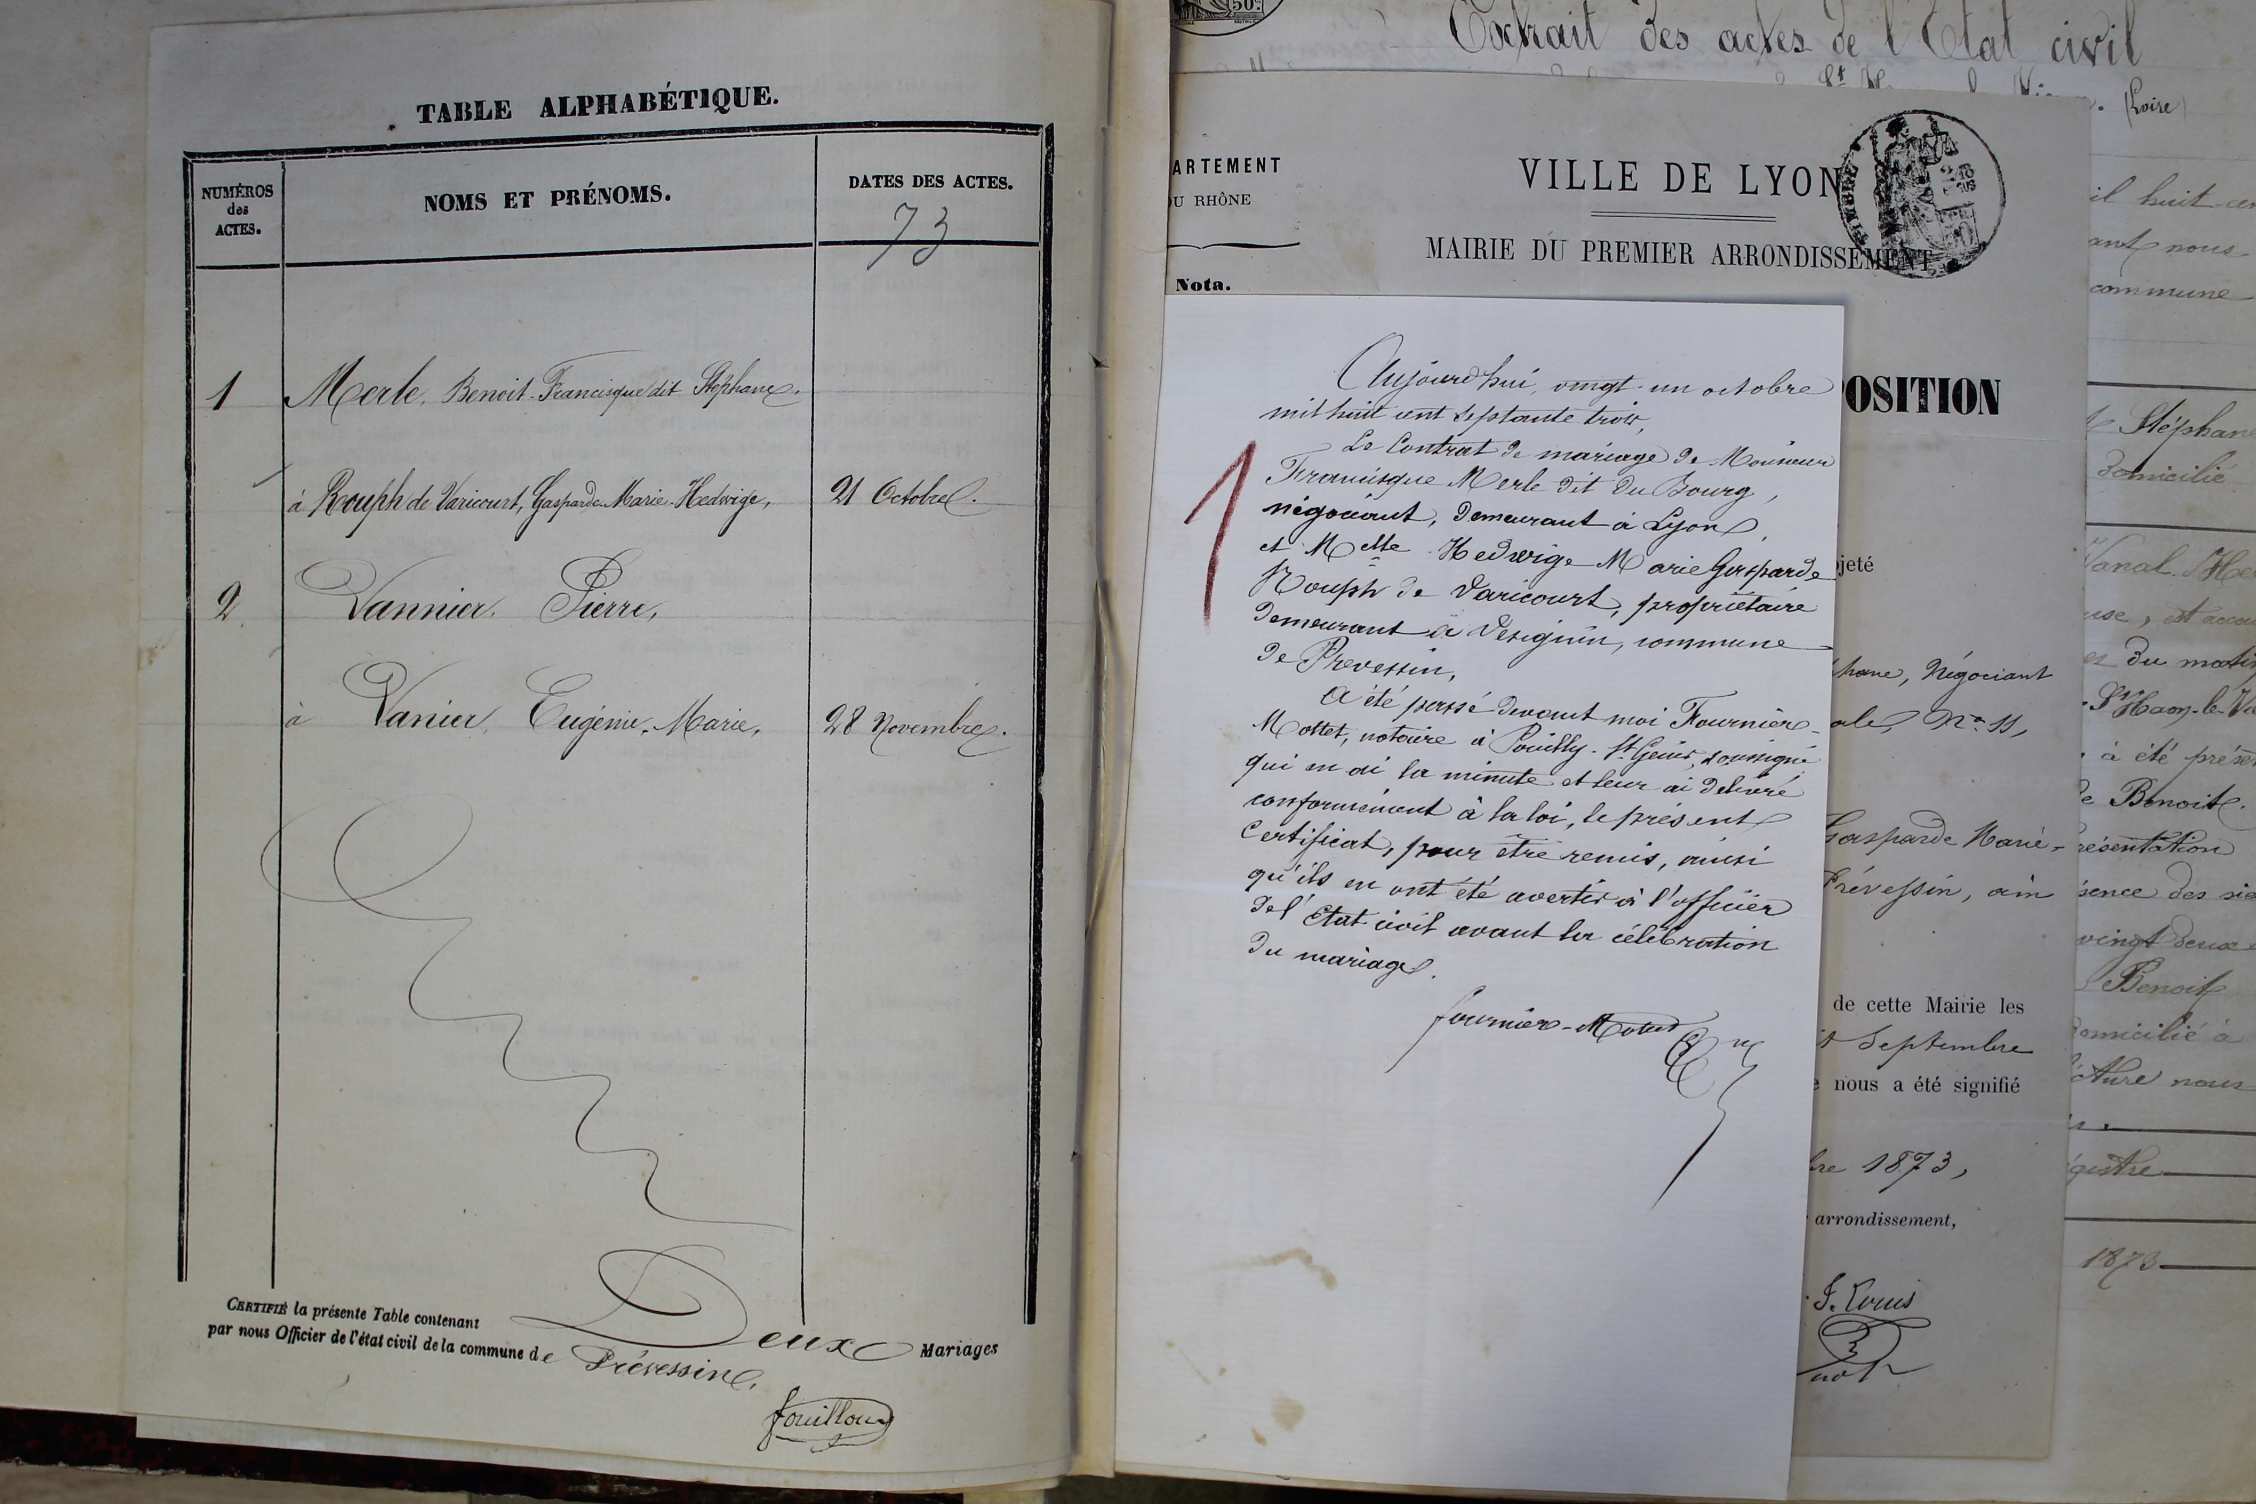 TABLE ALPHABÉTIQUE.
NUMÉROS
des
ACTES.
NOMS ET PRÉNOMS.
DATES DES ACTES.
73
1 Merle, Benoit-Francisque dit Stéphane.
à Rouph de Varicourt, Gasparde-Marie-Hedwige, 21 Octobre.
2 Vannier, Pierre,
à Vanier, Eugénie-Marie, 28 Novembre.
CERTIFIÉ la présente Table contenant Deux Mariages
par nous Officier de l'état civil de la commune de Prévessin.
fouilloux
Extrait des actes de l'Etat civil
(Loire)
ARTEMENT
DU RHÔNE
Nota.
VILLE DE LYON
MAIRIE DU PREMIER ARRONDISSEMENT
Aujourd'hui, vingt-un octobre
mil huit cent septante trois,
Le Contrat de mariage de Monsieur
Francisque Merle dit Du Bourg,
négociant, demeurant à Lyon,
et Melle Hedwige Marie Gasparde
Rouph de Varicourt, propriétaire
demeurant à Vesegnin, commune
de Prevessin,
A été passé devant moi Fournier-
Mottet, notaire à Pouilly-St Genis, soussigné
qui en ai la minute et leur ai délivré
conformément à la loi, le présent
Certificat, pour être remis, ainsi
qu'ils en ont été avertis à l'officier
de l'Etat civil avant la célébration
du mariage.
fournier-Mottet
1
OSITION
jeté
hane, Négociant
ale, No 11,
Gasparde Marie-
Prévessin, ain
de cette Mairie les
Septembre
nous a été signifié
bre 1873,
arrondissement,
J. Louis
il huit-cen
ant nous
commune
Stéphane
Domicilié
use, est accou
es du matin
St Haon-le-V
à été présen
de Benoit.
résentation
sence des sie
vingt deux
Benoit
domicilié à
cture nous
gistre
1873